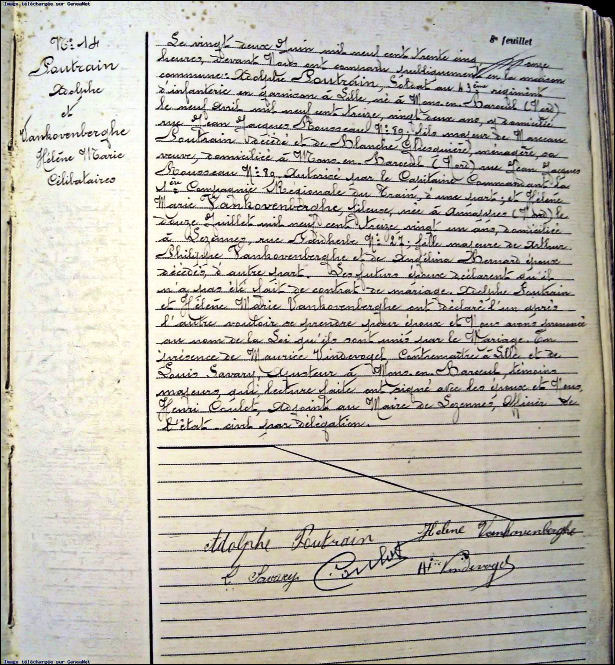 Image téléchargée sur GeneaNet
8e feuillet
N° 14
Poutrain
Adolphe
et
Vankovenberghe
Hélène Marie
Célibataires
Le vingt deux Juin mil neuf cent trente cinq onze
heures, devant Nous ont comparu publiquement en la maison
commune: Adolphe Poutrain, Soldat au 43e régiment
d'infanterie en garnison à Lille, né à Mons-en-Barœul (Nord)
le neuf Avril mil neuf cent treize, vingt deux ans, domicilié
rue Jean Jacques Rousseau N° 29, fils majeur de
Poutrain décédé et de Blanche ménagère, sa
veuve, domiciliée à Mons-en-Barœul (Nord) rue Jean Jacques
Rousseau N° 29. Autorisé par le Capitaine Commandant la
1ère Compagnie Régionale du Train, d'une part; et Hélène
Marie Vankovenberghe fileuse, née à Annappes (Nord) le
douze Juillet mil neuf cent treize vingt un ans, domiciliée
à Lezennes, rue Faidherbe N° 27; fille majeure de Arthur
Philippe Vankovenberghe et de Angélina Bernard époux
décédés, d'autre part. Les futurs époux déclarent qu'il
n'a pas été fait de contrat de mariage. Adolphe Poutrain
et Hélène Marie Vankovenberghe ont déclaré l'un après
l'autre vouloir se prendre pour époux et Nous avons prononcé
au nom de la Loi qu'ils sont unis par le Mariage. En
présence de Maurice Vindevogel, Contremaître à Lille et de
Louis Savary, Ajusteur à Mons-en-Barœul, témoins
majeurs, qui, lecture faite ont signé avec les époux et Nous,
Henri Coulot, Adjoint au Maire de Lezennes, Officier de
l'état-civil par délégation.
Adolphe Poutrain Hélène Vankovenberghe
L Savary Coulot Vindevogel
Image téléchargée sur GeneaNet